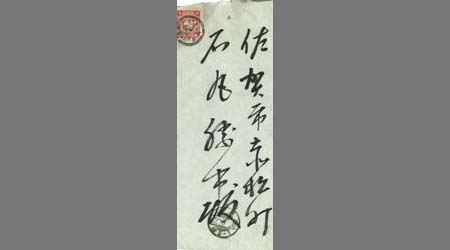 佐賀市赤松町
石丸勝 殿